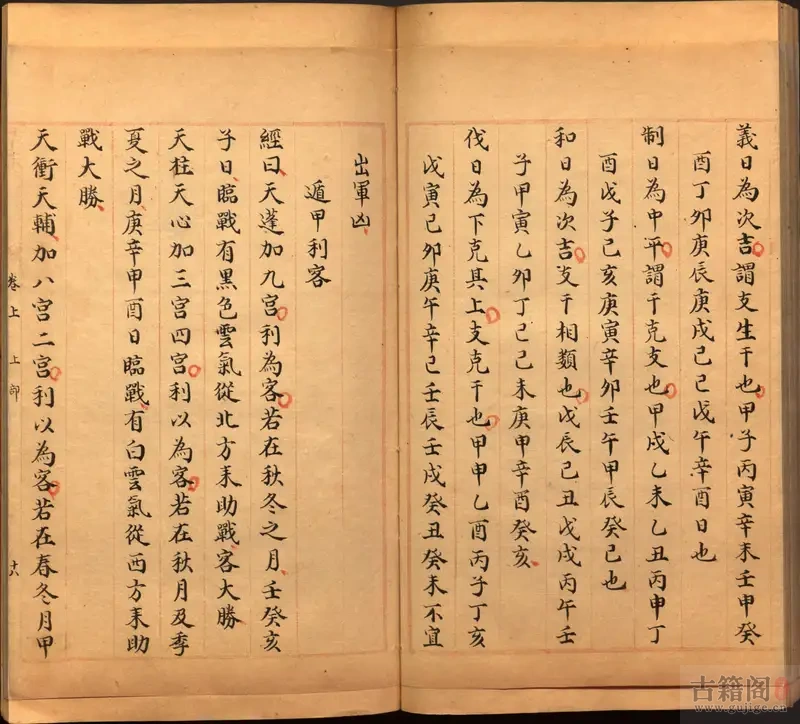 義日為次吉謂支生干也甲子丙寅辛未壬申癸
酉丁卯庚辰庚戌己巳戊午辛酉日也
制日為中平謂干克支也甲戌乙未乙丑丙申丁
酉戊子己亥庚寅辛卯壬午甲辰癸巳也
和日為次吉支干相類也戊辰己丑戊戌丙午壬
子甲寅乙卯丁巳己未庚申辛酉癸亥
伐日為下克其上支克干也甲申乙酉丙子丁亥
戊寅己卯庚午辛巳壬辰壬戌癸丑癸未不宜
出軍凶
遁甲利客
經曰天蓬加九宮利為客若在秋冬之月壬癸亥
子日臨戰有黑色雲氣從北方來助戰客大勝
天柱天心加三宮四宮利以為客若在秋月及季
夏之月庚辛申酉日臨戰有白雲氣從西方來助
戰大勝
天衝天輔加八宮二宮利以為客若在春冬月甲
卷上 上部
十八
古籍阁
www.gujige.cn